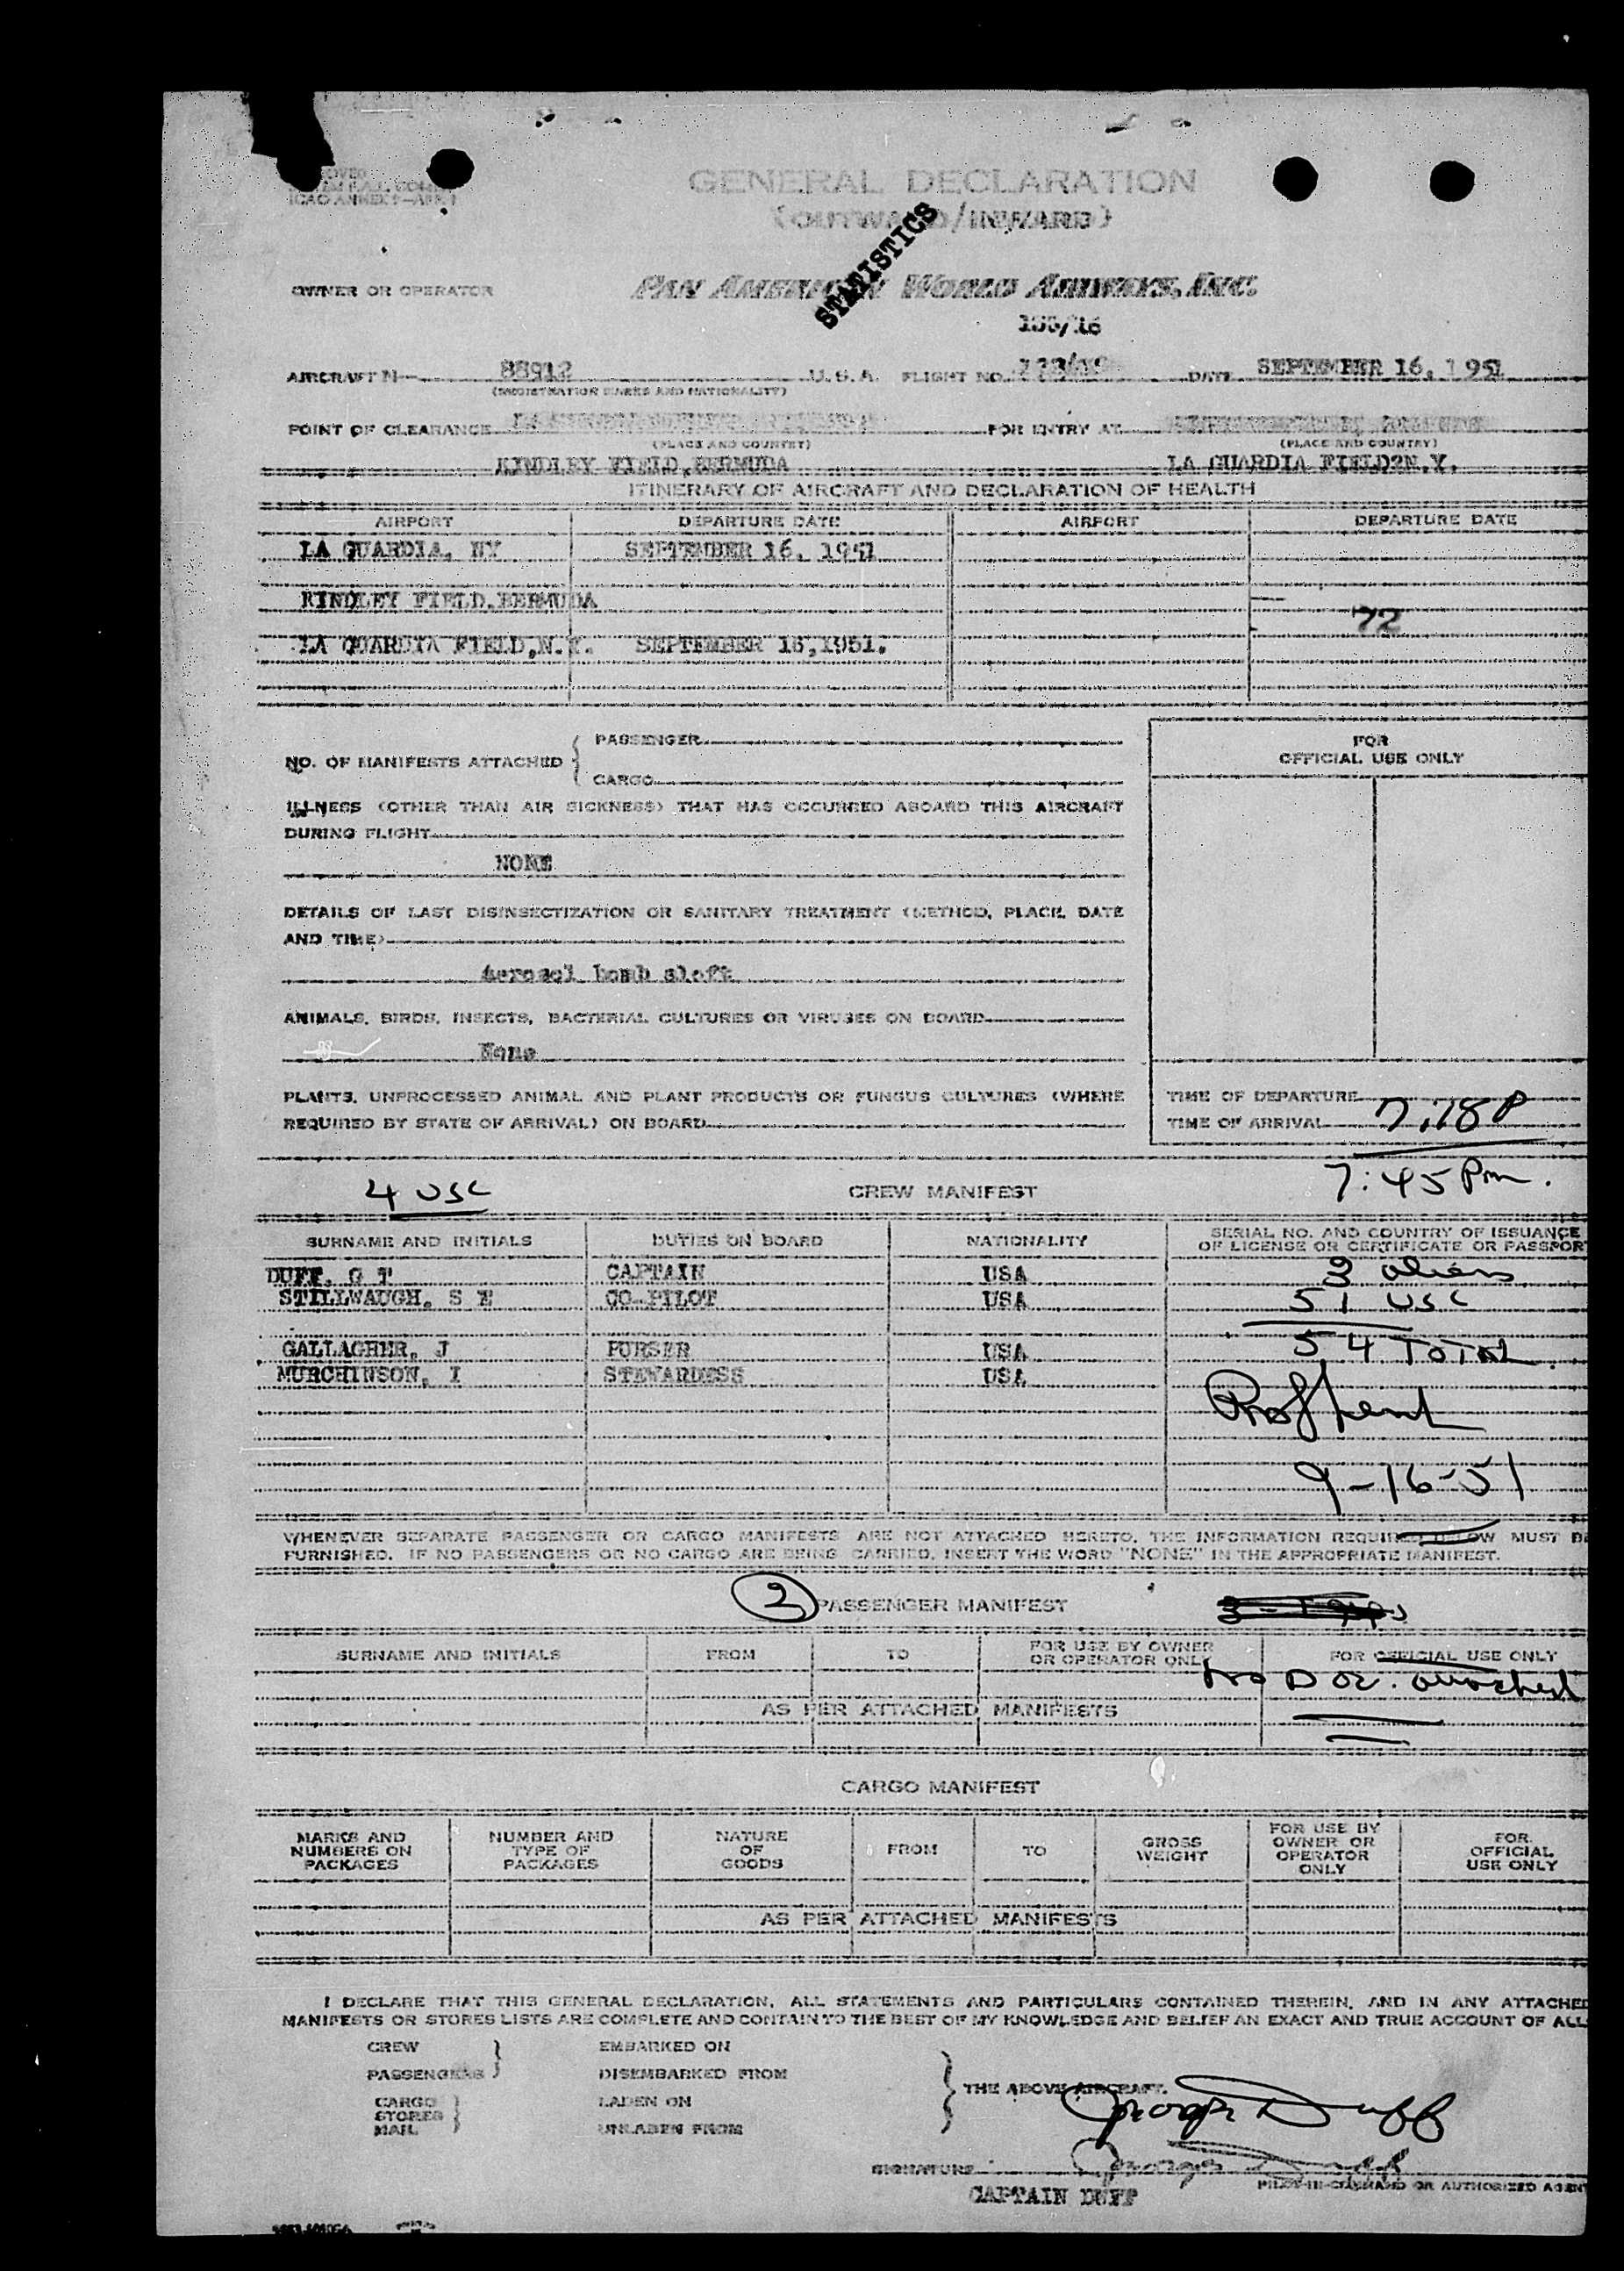 GENERAL DECLARATION
(OUTWARD/INWARD)
STATISTICS
OWNER OR OPERATOR PAN AMERICAN WORLD AIRWAYS, INC.
AIRCRAFT N- 88912 U.S.A. FLIGHT NO. DATE SEPTEMBER 16, 1951
(REGISTRATION MARKS AND NATIONALITY)
POINT OF CLEARANCE FOR ENTRY AT
(PLACE AND COUNTRY) (PLACE AND COUNTRY)
KINDLEY FIELD,BERMUDA LA GUARDIA FIELD?N.Y.
ITINERARY OF AIRCRAFT AND DECLARATION OF HEALTH
AIRPORT DEPARTURE DATE AIRPORT DEPARTURE DATE
LA GUARDIA, NY SEPTEMBER 16, 1951
KINDLEY FIELD,BERMUDA
72
LA GUARDIA FIELD,N.Y. SEPTEMBER 16,1951.
NO. OF MANIFESTS ATTACHED { PASSENGER
CARGO
FOR
OFFICIAL USE ONLY
ILLNESS (OTHER THAN AIR SICKNESS) THAT HAS OCCURRED ABOARD THIS AIRCRAFT
DURING FLIGHT
NONE
DETAILS OF LAST DISINSECTIZATION OR SANITARY TREATMENT (METHOD, PLACE, DATE
AND TIME)
Aerosol bomb aloft
ANIMALS, BIRDS, INSECTS, BACTERIAL CULTURES OR VIRUSES ON BOARD
None
PLANTS, UNPROCESSED ANIMAL AND PLANT PRODUCTS OR FUNGUS CULTURES (WHERE
REQUIRED BY STATE OF ARRIVAL) ON BOARD
TIME OF DEPARTURE
TIME OF ARRIVAL 7:18P
7:45 Pm.
4 USC
CREW MANIFEST
SURNAME AND INITIALS DUTIES ON BOARD NATIONALITY SERIAL NO. AND COUNTRY OF ISSUANCE
OF LICENSE OR CERTIFICATE OR PASSPORT
DUFF, G T CAPTAIN USA 3 aliens
STILLWAUGH, S E CO-PILOT USA 51 USC
GALLAGHER, J PURSER USA 54 TOTAL.
MURCHINSON, I STEWARDESS USA
9-16-51
WHENEVER SEPARATE PASSENGER OR CARGO MANIFESTS ARE NOT ATTACHED HERETO, THE INFORMATION REQUIRED BELOW MUST BE
FURNISHED. IF NO PASSENGERS OR NO CARGO ARE BEING CARRIED, INSERT THE WORD "NONE" IN THE APPROPRIATE MANIFEST.
2 PASSENGER MANIFEST
SURNAME AND INITIALS FROM TO FOR USE BY OWNER
OR OPERATOR ONLY FOR OFFICIAL USE ONLY
No Doc. attached
AS PER ATTACHED MANIFESTS
CARGO MANIFEST
MARKS AND
NUMBERS ON
PACKAGES
NUMBER AND
TYPE OF
PACKAGES
NATURE
OF
GOODS
FROM
TO
GROSS
WEIGHT
FOR USE BY
OWNER OR
OPERATOR
ONLY
FOR
OFFICIAL
USE ONLY
AS PER ATTACHED MANIFESTS
I DECLARE THAT THIS GENERAL DECLARATION, ALL STATEMENTS AND PARTICULARS CONTAINED THEREIN, AND IN ANY ATTACHED
MANIFESTS OR STORES LISTS ARE COMPLETE AND CONTAIN TO THE BEST OF MY KNOWLEDGE AND BELIEF AN EXACT AND TRUE ACCOUNT OF ALL
CREW } EMBARKED ON
PASSENGERS DISEMBARKED FROM
CARGO LADEN ON
STORES
MAIL UNLADEN FROM
THE ABOVE AIRCRAFT.
George Duff
SIGNATURE George Duff
PILOT-IN-COMMAND OR AUTHORIZED AGENT
CAPTAIN DUFF